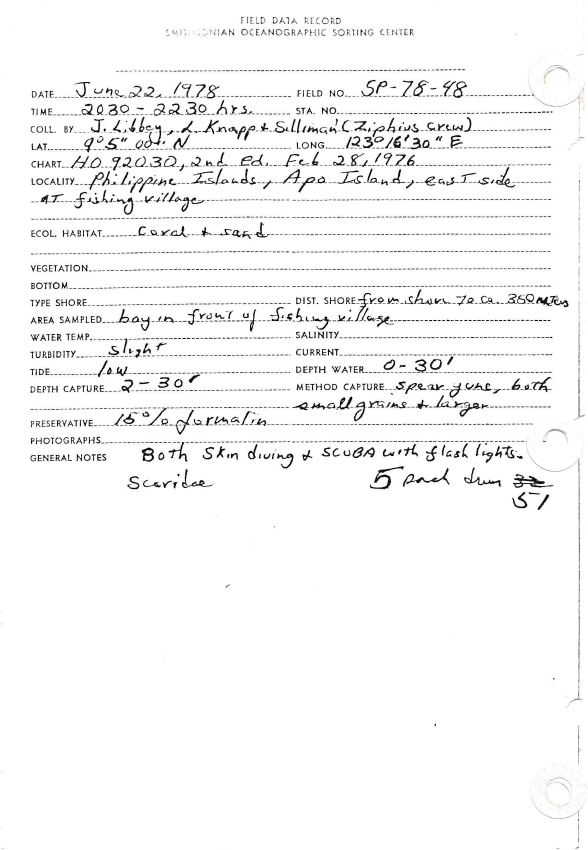 FIELD DATA RECORD
SMITHSONIAN OCEANOGRAPHIC SORTING CENTER
DATE June 22, 1978 FIELD NO. SP-78-48
TIME 2030 - 2230 hrs. STA. NO.
COLL. BY J. Libbey, L. Knapp & Silliman (Ziphius crew)
LAT. 9° 5" 00". N LONG. 123° 16' 30" E
CHART HO 92030, 2nd ed. Feb 28, 1976
LOCALITY Philippine Islands, Apo Island, east side
at fishing village
ECOL. HABITAT Coral & sand
VEGETATION
BOTTOM
TYPE SHORE DIST. SHORE from shore to ca. 350 meters
AREA SAMPLED bay in front of fishing village
WATER TEMP. SALINITY
TURBIDITY slight CURRENT
TIDE low DEPTH WATER 0-30'
DEPTH CAPTURE 2-30' METHOD CAPTURE spear guns, both
small grains & larger
PRESERVATIVE 15% formalin
PHOTOGRAPHS
GENERAL NOTES Both Skin diving & SCUBA with flash lights.
Scaridae 5 drum 32
51